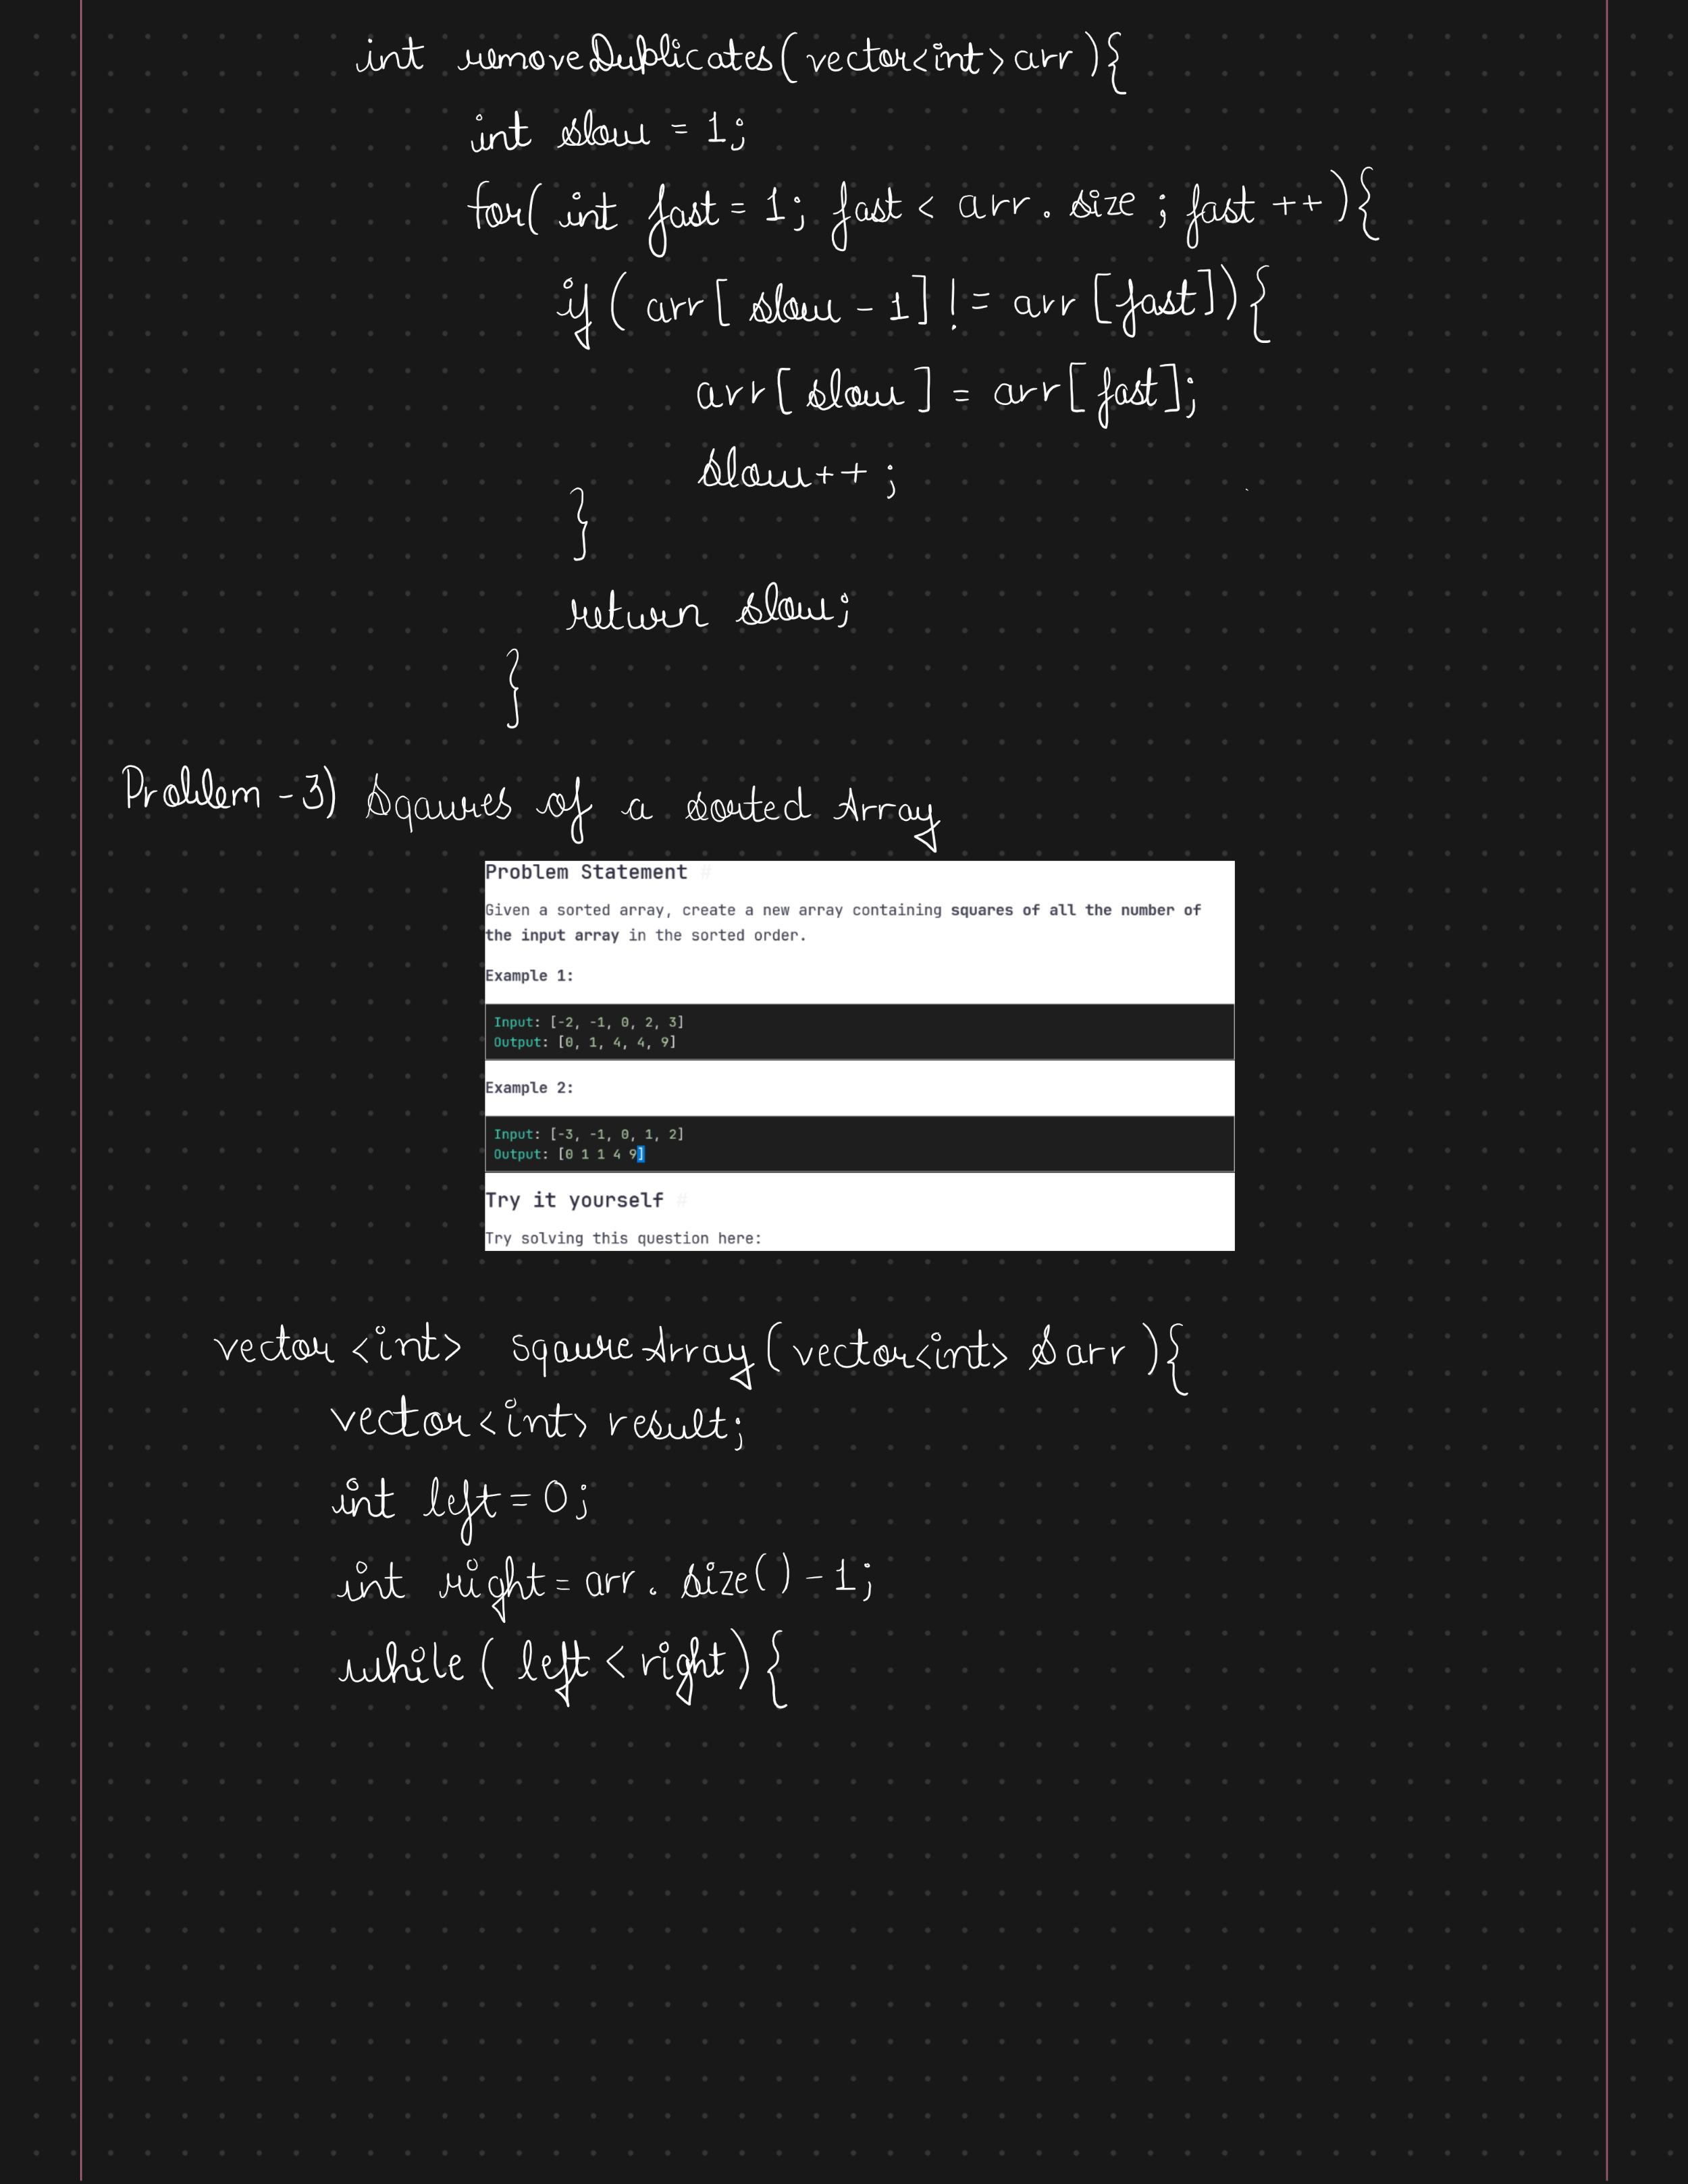 int removeDublicates(vector<int>arr){
int slow = 1;
for( int fast = 1; fast < arr. size ; fast ++){
if ( arr[ slow - 1] != arr [fast]){
arr[ slow ] = arr[ fast];
slow++ ;
}
return slow;
}
Problem - 3) Sqaures of a sorted Array
Problem Statement #
Given a sorted array, create a new array containing squares of all the number of
the input array in the sorted order.
Example 1:
Input: [-2, -1, 0, 2, 3]
Output: [0, 1, 4, 4, 9]
Example 2:
Input: [-3, -1, 0, 1, 2]
Output: [0 1 1 4 9]
Try it yourself #
Try solving this question here:
vector <int> sqaureArray (vector<int> &arr ){
vector<int> result;
int left = 0;
int right = arr. size() - 1;
while ( left < right) {